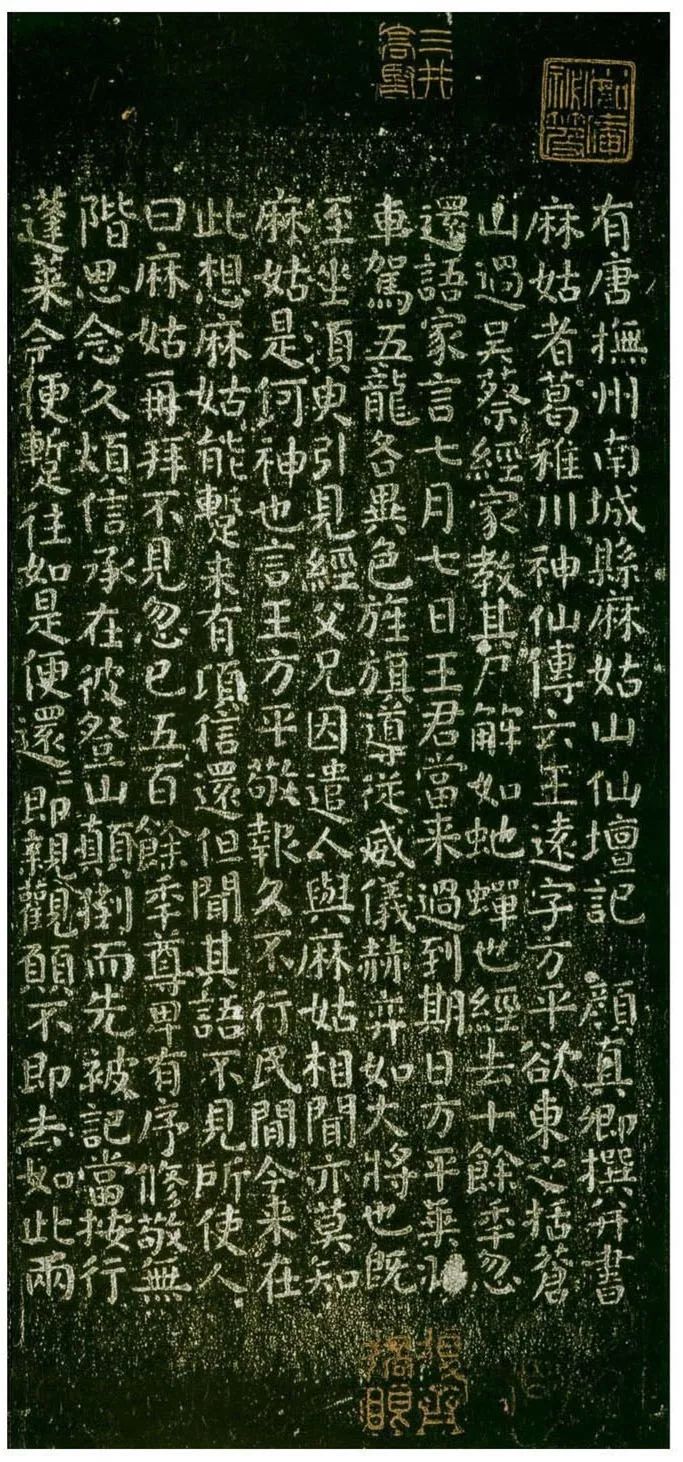 有唐撫州南城縣麻姑山仙壇記 顏真卿撰并書
麻姑者葛稚川神仙傳云王遠字方平欲東之括蒼
山過吳蔡經家教其尸解如虵蟬也經去十餘年忽
還語家言七月七日王君當来過到期日方平乗
車駕五龍各異色旌旗導從威儀赫弈如大將也既
至坐須臾引見經父兄因遣人與麻姑相聞亦莫知
麻姑是何神也言王方平敬報久不行民間今来在
此想麻姑能蹔来有頃信還但聞其語不見所使人
曰麻姑再拜不見忽已五百餘年尊卑有序修敬無
階思念久煩信承在彼登山顛倒而先被記當按行
蓬萊今便蹔往如是便還還即親觀願不即去如此兩